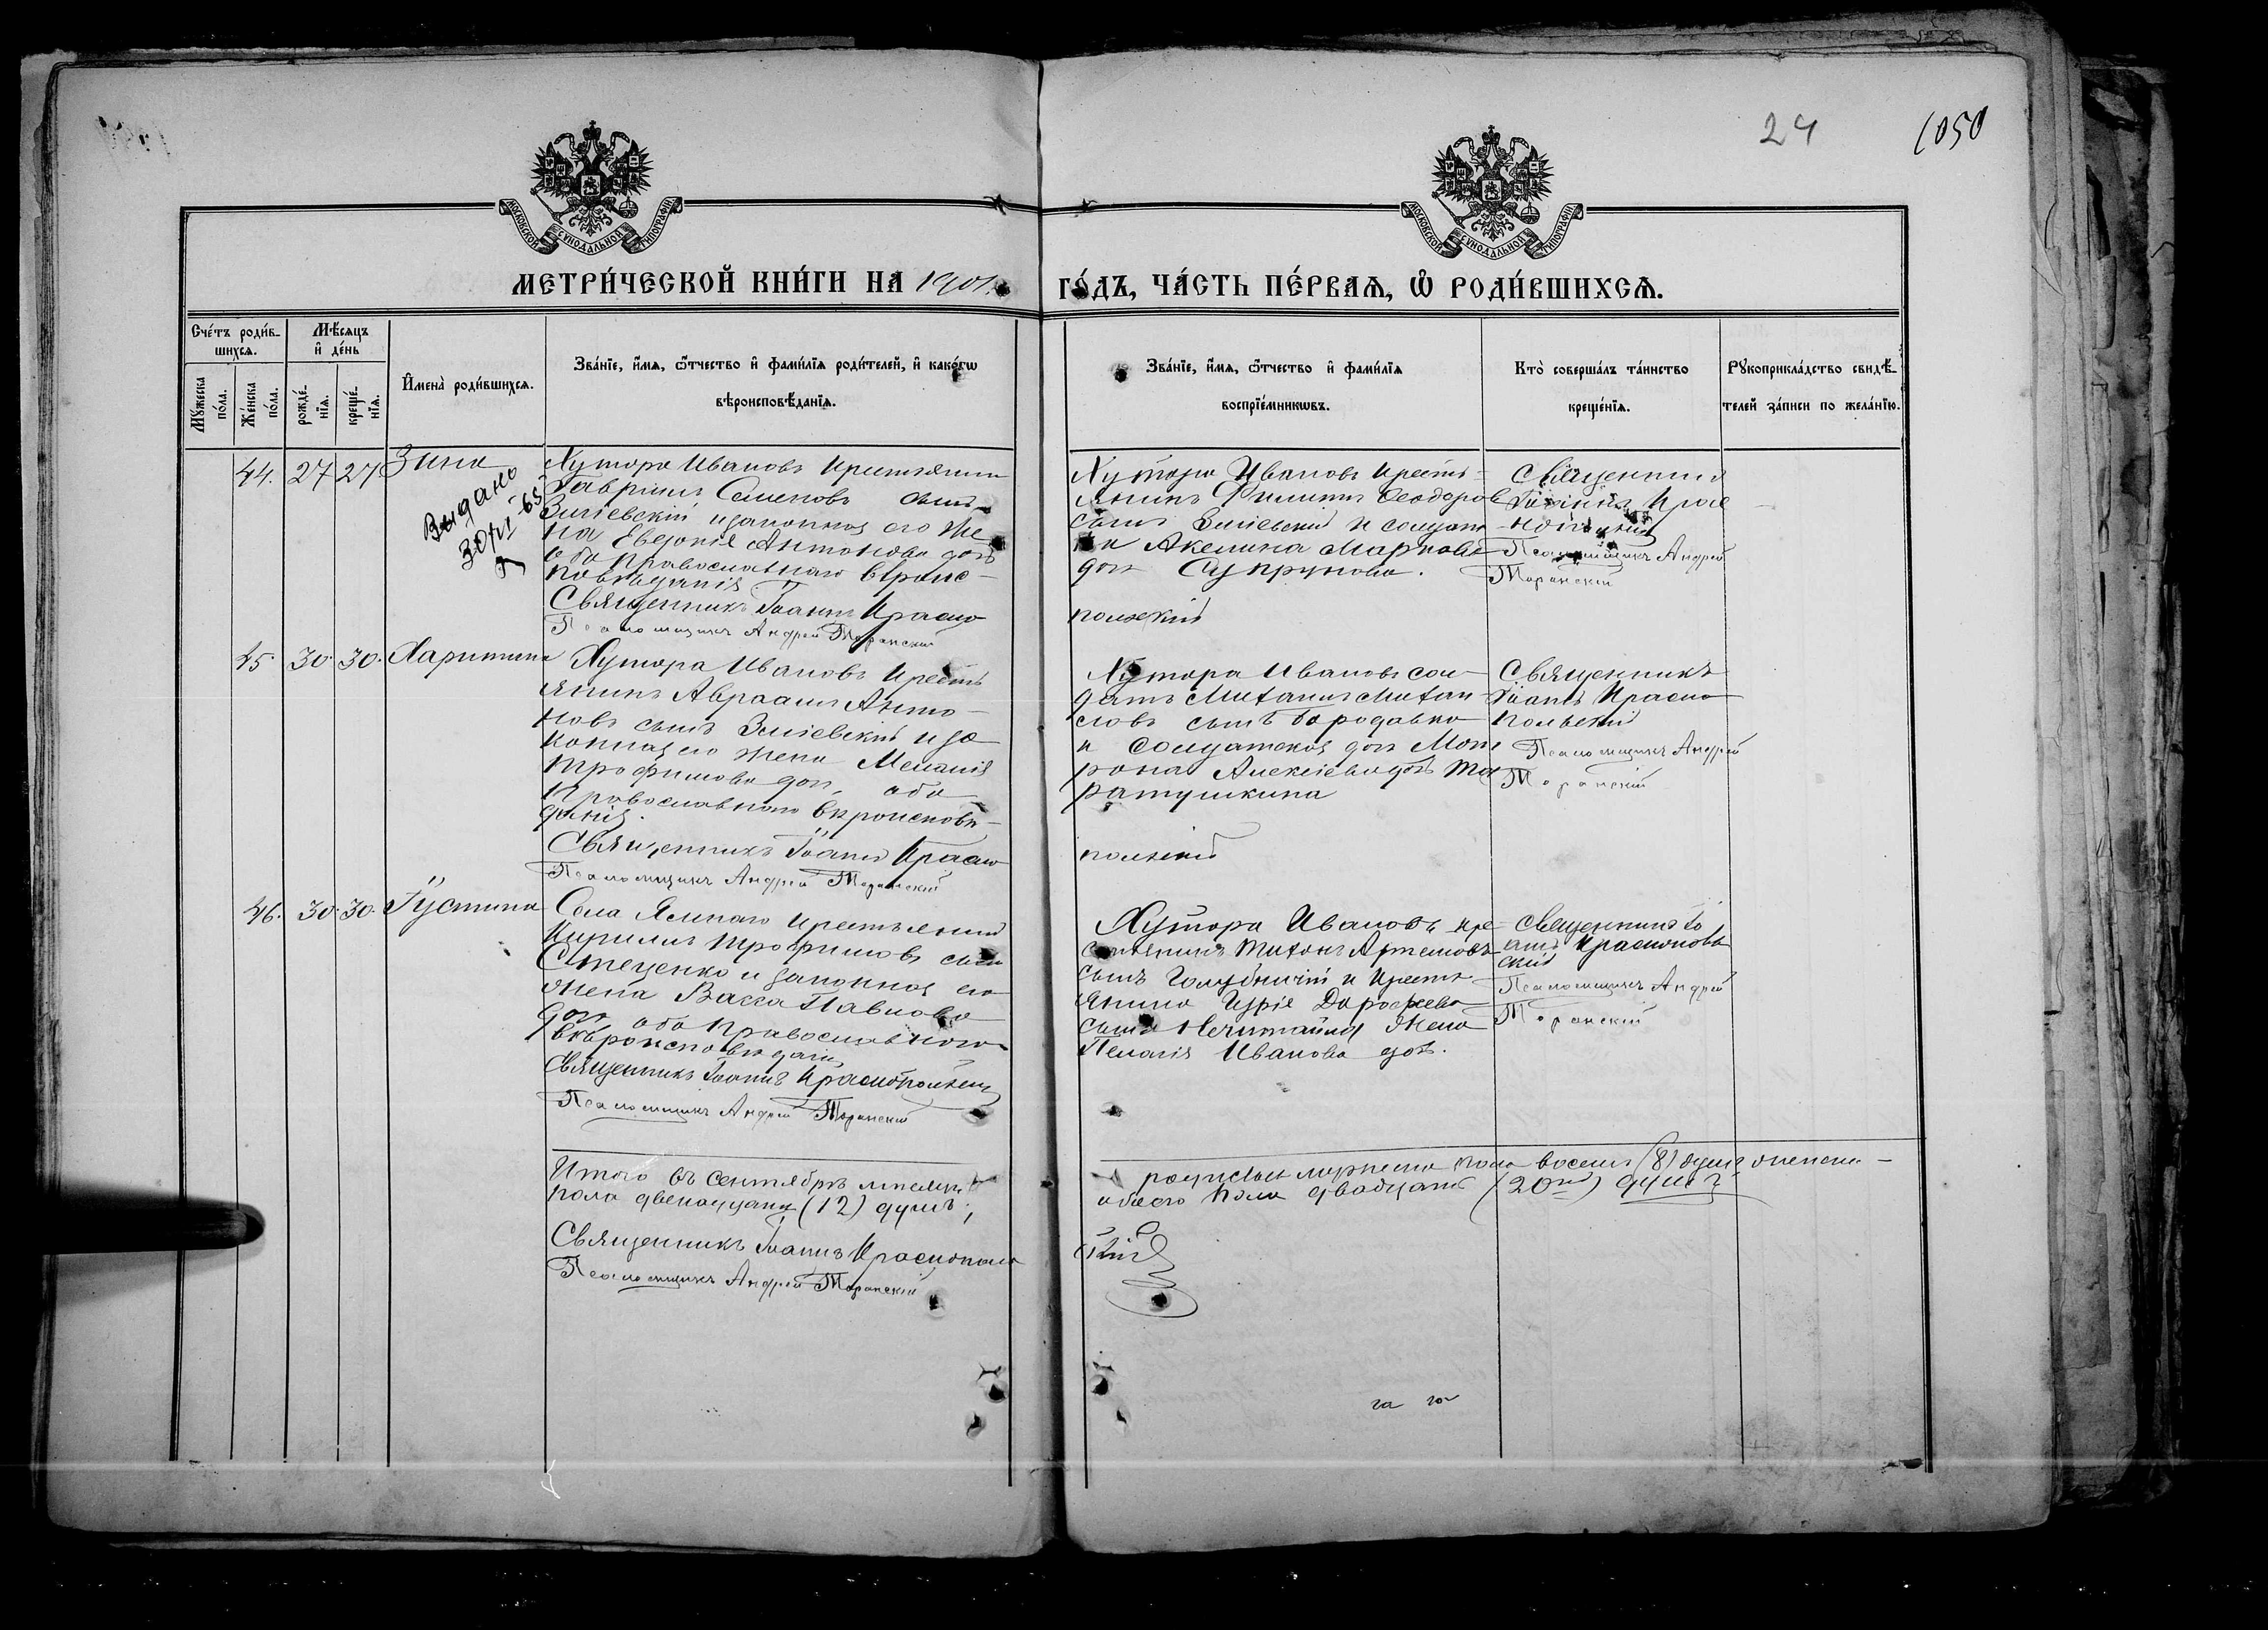 24
1050
МОСКОВСКОЙ СѴНОДАЛЬНОЙ ТИПОГРАФІИ
МОСКОВСКОЙ СѴНОДАЛЬНОЙ ТИПОГРАФІИ
МЕТРИ́ЧЕСКОЙ КНИ́ГИ НА 1901
ГО́ДЪ, ЧА́СТЬ ПЕ́РВАѦ, Ѽ РОДИ́ВШИХСѦ.
Сче́тъ роди́в-
шихсѧ.
Мꙋжеска
по́ла.
Же́нска
по́ла.
Мѣ́сѧцъ
и҆ де́нь
рожде́-
нїѧ.
креще́-
нїѧ.
И҆мена̀ роди́вшихсѧ.
Зва́нїе, и҆́мѧ, ѻ҆́тчество и҆ фами́лїѧ роди́телей, и҆ како́гѡ
вѣроисповѣ́данїѧ.
Зва́нїе, и҆́мѧ, ѻ҆́тчество и҆ фами́лїѧ
воспрїе́мникѡвъ.
Кто̀ соверша́лъ та́инство
креще́нїѧ.
Рꙋкоприкла́дство свидѣ́-
телей за́писи по жела́нїю.
44. 27 27 Зина
Выдано
30/VI-65
Хутора Ивановъ крестьянинъ
Гавріилъ Семеновъ сынъ
Зміевскій и законная его же-
на Евдокія Антонова дочь
оба православнаго вѣроис-
повѣданія.
Священникъ Іоаннъ Красно
Псаломщикъ Андрей Торанскій
Хутора Ивановъ кресть-
янинъ Филиппъ Феодоровъ
сынъ Зміевскій и солдат-
ка Акелина Маркова
дочь Супрунова.
польскій
Священникъ
Іоаннъ Крас
нопольскій
Псаломщикъ Андрей
Торанскій
45. 30. 30. Харитина
Хутора Ивановъ кресть
янинъ Авраамъ Анто-
новъ сынъ Зміевскій и за
конная его жена Меланія
Трофимова дочь, оба
православнаго вѣроисповѣ-
данія.
Священникъ Іоаннъ Красно
Псаломщикъ Андрей Торанскій
Хутора Ивановъ сол-
датъ Михаилъ Михаи-
ловъ сынъ Бородавко
и солдатская дочь Мот
рона Алексіева дочь Та
ратушкина
польскій
Священникъ
Іоаннъ Красно
польскій
Псаломщикъ Андрей
Торанскій
46. 30. 30. Іустина
Села Ямнаго крестьянинъ
Кириллъ Трофимовъ сынъ
Стеценко и законная его
жена Васса Павлова
дочь оба православнаго
вѣроисповѣданія
Священникъ Іоаннъ Краснопольскій
Псаломщикъ Андрей Торанскій
Хутора Ивановъ кре-
стьянинъ Тихонъ Артемовъ
сынъ Голубничій и кресть
янина Гурія Дорофеева
сына Нечитайла жена
Пелагія Иванова дочь.
Священникъ Іо
аннъ Краснополь
скій
Псаломщикъ Андрей
Торанскій
Итого въ сентябрѣ мѣсяцѣ
родилось мужеска пола восемь (8) душъ женска-
пола двенадцать (12) душъ;
обоего пола двадцать (20ть) душъ
Священникъ Іоаннъ Краснополь
скій
Псаломщикъ Андрей Торанскій